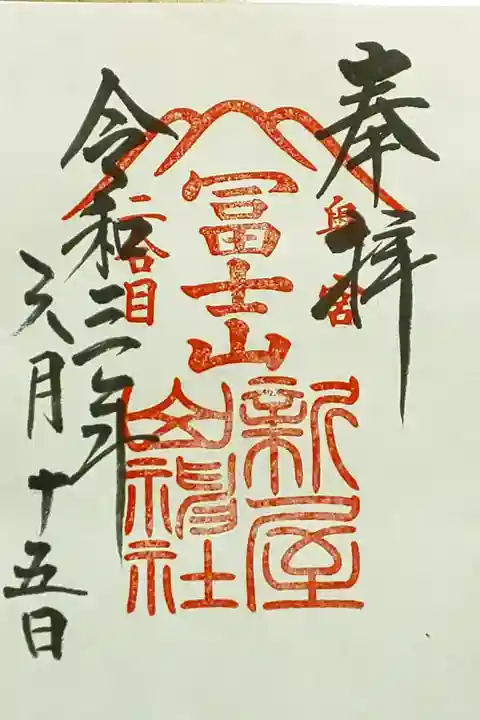 奉拝
奥宮
冨士山
新屋
山神社
二合目
令和三年
六月十五日